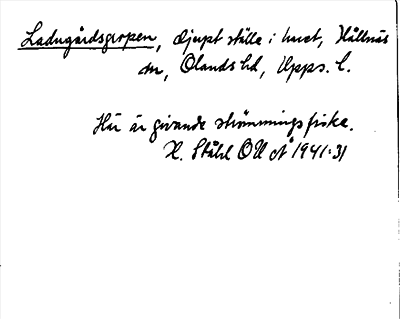 Ladugårdsgropen, djupt ställe i havet, Hållnäs
sn, Olands hd, Upps. l.
Här är givande strömmingsfiske.
H. Ståhl OUÅ 1941:31